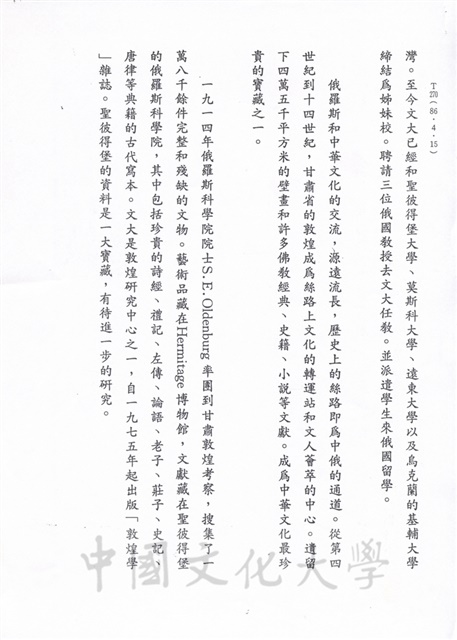 T270(86.4.15)
灣。至今文大已經和聖彼得堡大學、莫斯科大學、遠東大學以及烏克蘭的基輔大學
締結為姊妹校。聘請三位俄國教授去文大任教。並派遣學生來俄國留學。
俄羅斯和中華文化的交流,源遠流長,歷史上的絲路即為中俄的通道。從第四
世紀到十四世紀,甘肅省的敦煌成為絲路上文化的轉運站和文人薈萃的中心。遺留
下四萬五千平方米的壁畫和許多佛教經典、史籍、小說等文獻。成為中華文化最珍
貴的寶藏之一。
一九一四年俄羅斯科學院院士S.E.Oldenburg率團到甘肅敦煌考察,搜集了一
萬八千餘件完整和殘缺的文物。藝術品藏在Hermitage博物館,文獻藏在聖彼得堡
的俄羅斯科學院,其中包括珍貴的詩經、禮記、左傳、論語、老子、莊子、史記、
唐律等典籍的古代寫本。文大是敦煌研究中心之一,自一九七五年起出版「敦煌學
」雜誌。聖彼得堡的資料是一大寶藏,有待進一步的研究。
中國文化大學